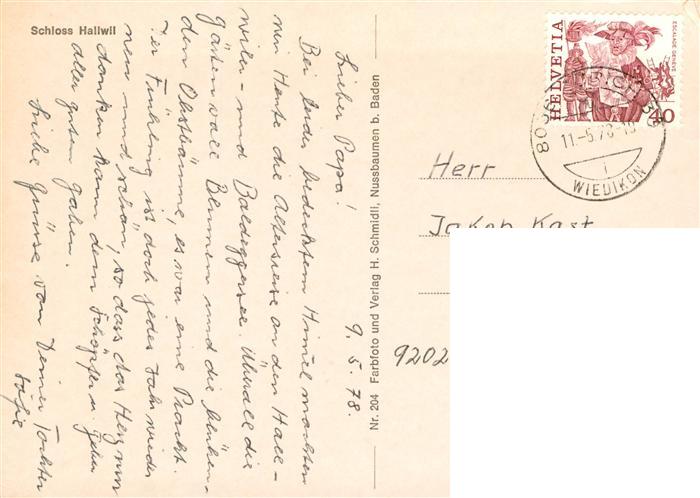 Schloss Hallwil
9. 5. 78.
Lieber Papa!
Bei leider bedecktem Himel machten
wir Heute die Altersreise an den Hall-
wiler- und Baldeggersee. Überall die
Gärten voll Blumen und die blühen-
den Obstbäume, es war eine Pracht.
Der Frühling ist doch jedes Jahr wieder
neu und schön, so dass das Herz nur
danken kann dem Schöpfer u. Geber
aller guten Gaben.
Liebe Grüsse von Deiner Tochter
Nr. 204 Farbfoto und Verlag H. Schmidli, Nussbaumen b. Baden
HELVETIA
ESCALADE GENÈVE
40
11.-5.78-19
WIEDIKON
Herr
Jakob Kast
9202